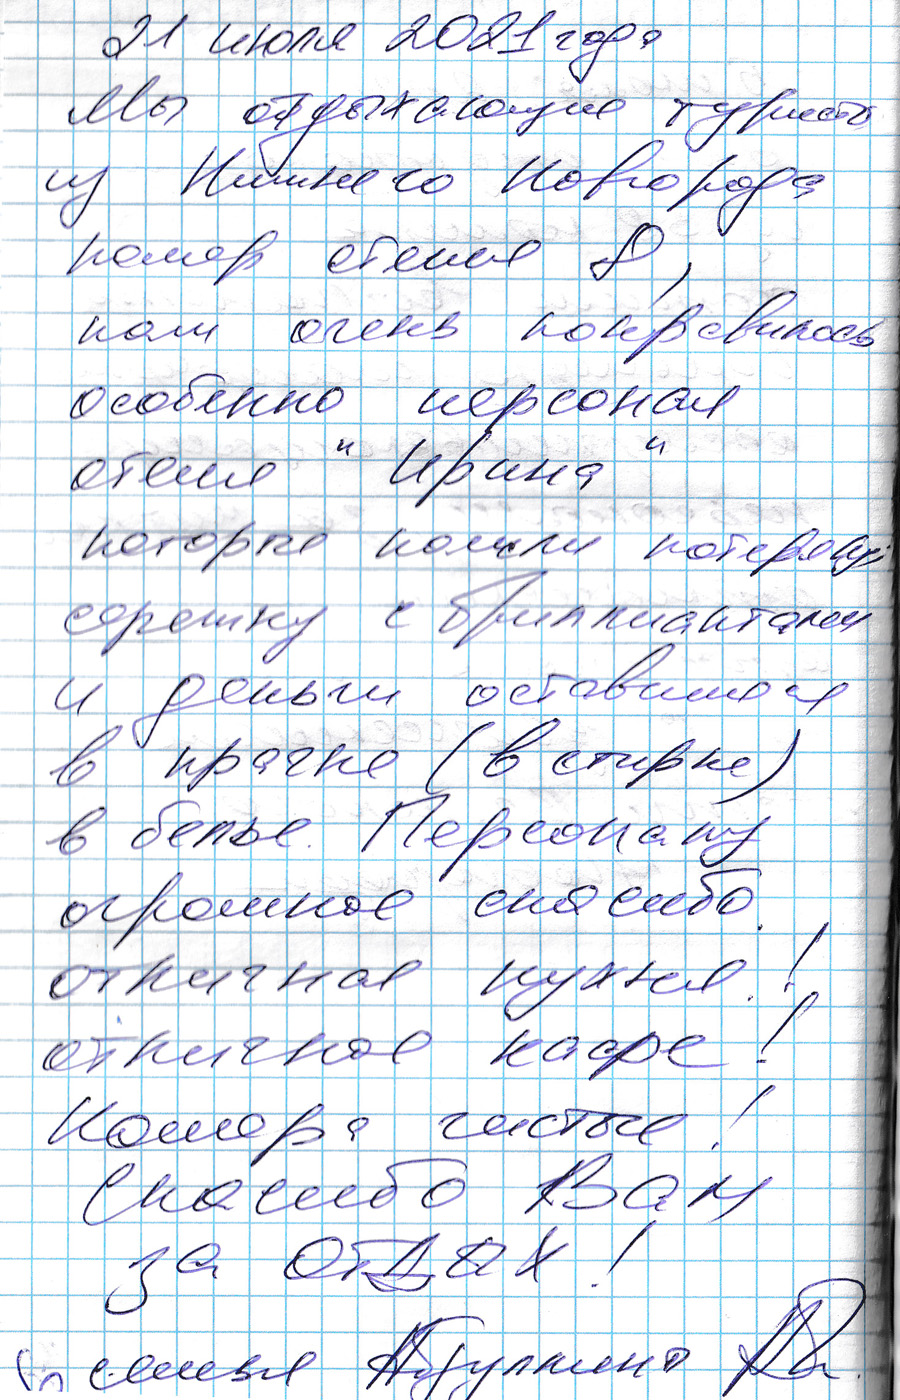 21 июля 2021 года
Мы отдыхающие туристы
из Нижнего Новорода
номер отеля 8,
нам очень понравилось
особенно персонал
отеля "Ирина"
которые нашли потеряную
сережку с бриллиантами
и деньги оставшиеся
в прачке (в стирке)
в белье. Персоналу
огромное спасибо.
отличная кухня!
отличное кафе!
Номера чистые!
Спасибо Вам
за отдых!
семья